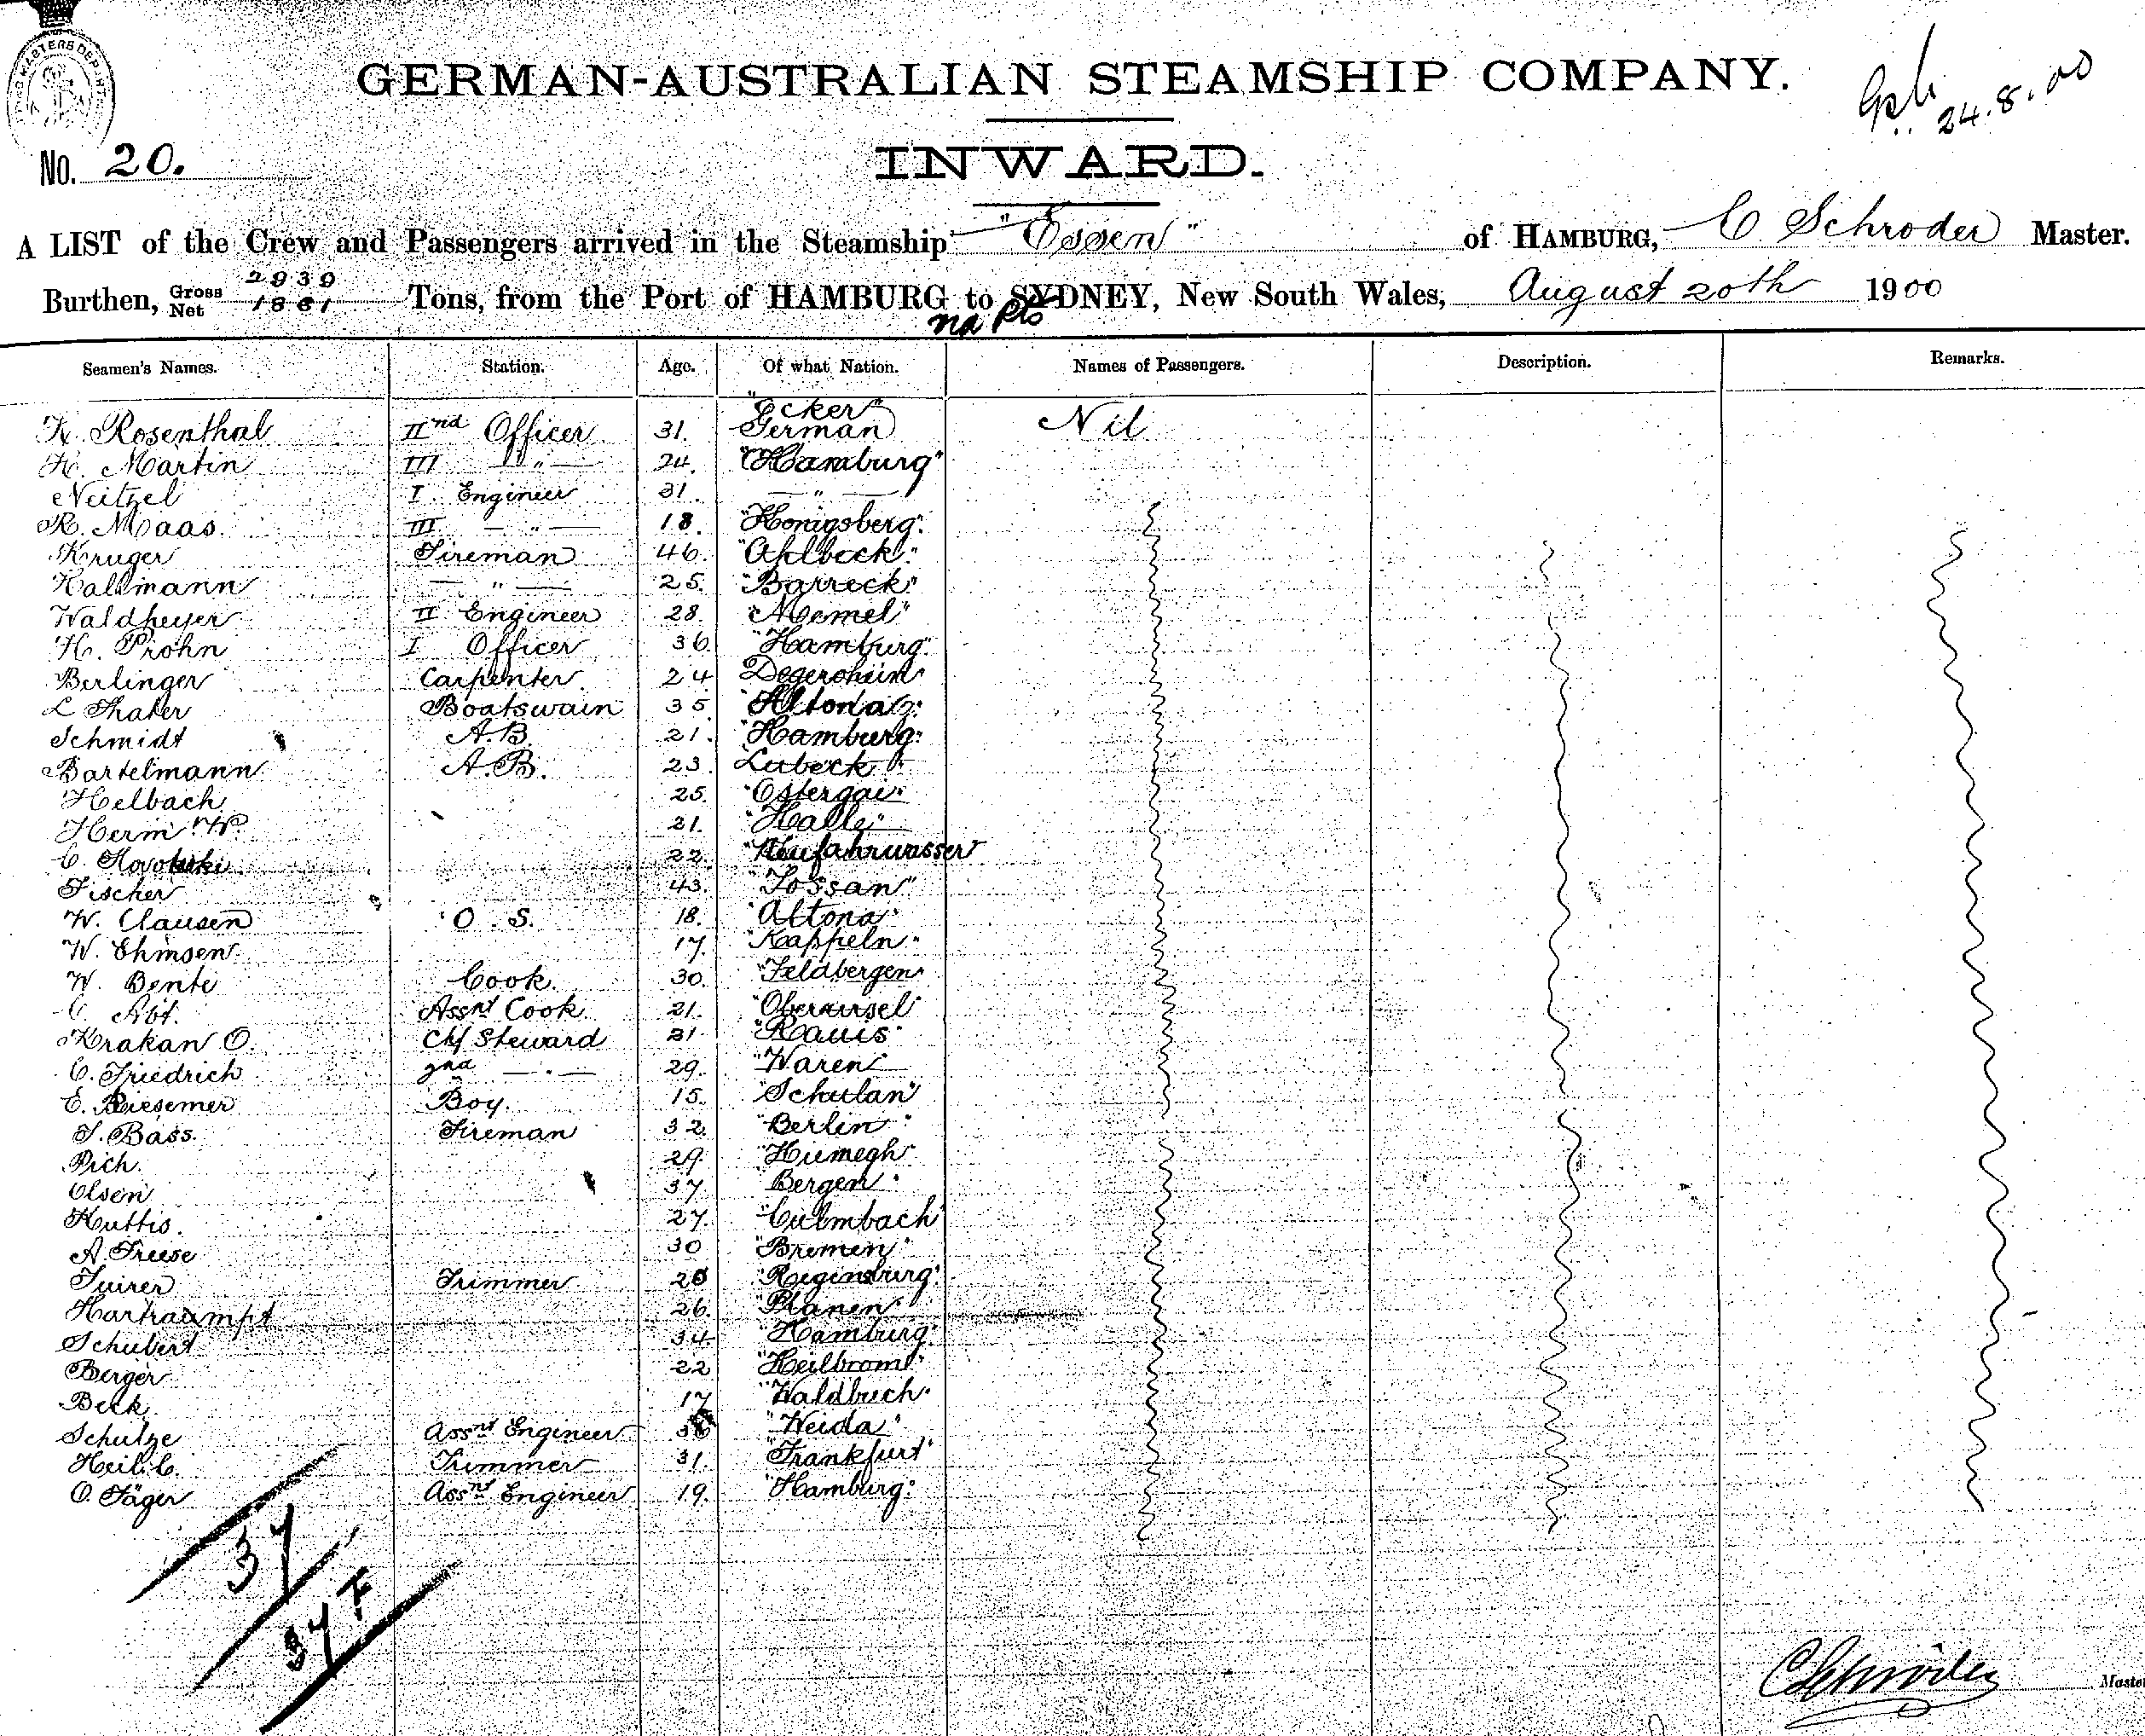 GERMAN-AUSTRALIAN STEAMSHIP COMPANY.
24.8.00
INWARD.
No. 20.
A LIST of the Crew and Passengers arrived in the Steamship "Essen" of HAMBURG, C Schroder Master.
Burthen, Gross 2939 Net 1861 Tons, from the Port of HAMBURG to SYDNEY, New South Wales, August 20th 1900
na Pts
Seamen's Names. Station. Age. Of what Nation. Names of Passengers. Description. Remarks.
K. Rosenthal IInd Officer 31. "Ecker" German Nil
H. Martin III — " — 24. "Hamburg"
Neitzel I Engineer 31. — " —
R. Maas. III — " — 18. "Konigsberg"
Kruger Fireman 46. "Ahlbeck"
Kallmann — " — 25. "Barreck"
Waldheyer II Engineer 28. "Memel"
H. Prohn I Officer 36. "Hamburg"
Berlinger Carpenter 24 Degersheim"
L Thaler Boatswain 35 "Altona"
Schmidt A.B. 21. "Hamburg"
Bartelmann A.B. 23. Lubeck"
Helbach 25. "Ostergai"
Herm W. 21. "Halle"
C. 22. "Neufahrwasser
Fischer 43. "Tossan"
W. Clausen O.S. 18. "Altona"
W. Ehmsen 17. "Kappeln"
W. Bente Cook. 30. "Feldbergen"
C. Abt. Assnt Cook 21. "Oberursel"
Krakan O. Chf Steward 31 "Rauis"
C. Friedrich 2nd — " — 29. "Waren"
E. Riesemer Boy. 15. "Schulan"
J. Bass. Fireman 32. "Berlin"
Pich. 29. "Humegh"
Olsen 37 "Bergen"
Huttis. 27. "Culmbach"
A. Freese 30 "Bremen"
Juirer Trimmer 20 "Regensburg"
Hartraumpf 26. "Planen"
Schubert 34. "Hamburg"
Berger 22 "Heilbronn"
Beck 17 "Waldbuch"
Schulze Assnt Engineer 36 "Weida"
Heil. C. Trimmer 31. "Frankfurt"
O. Jäger Assnt Engineer 19. "Hamburg"
37
37 F
CSchröder Master